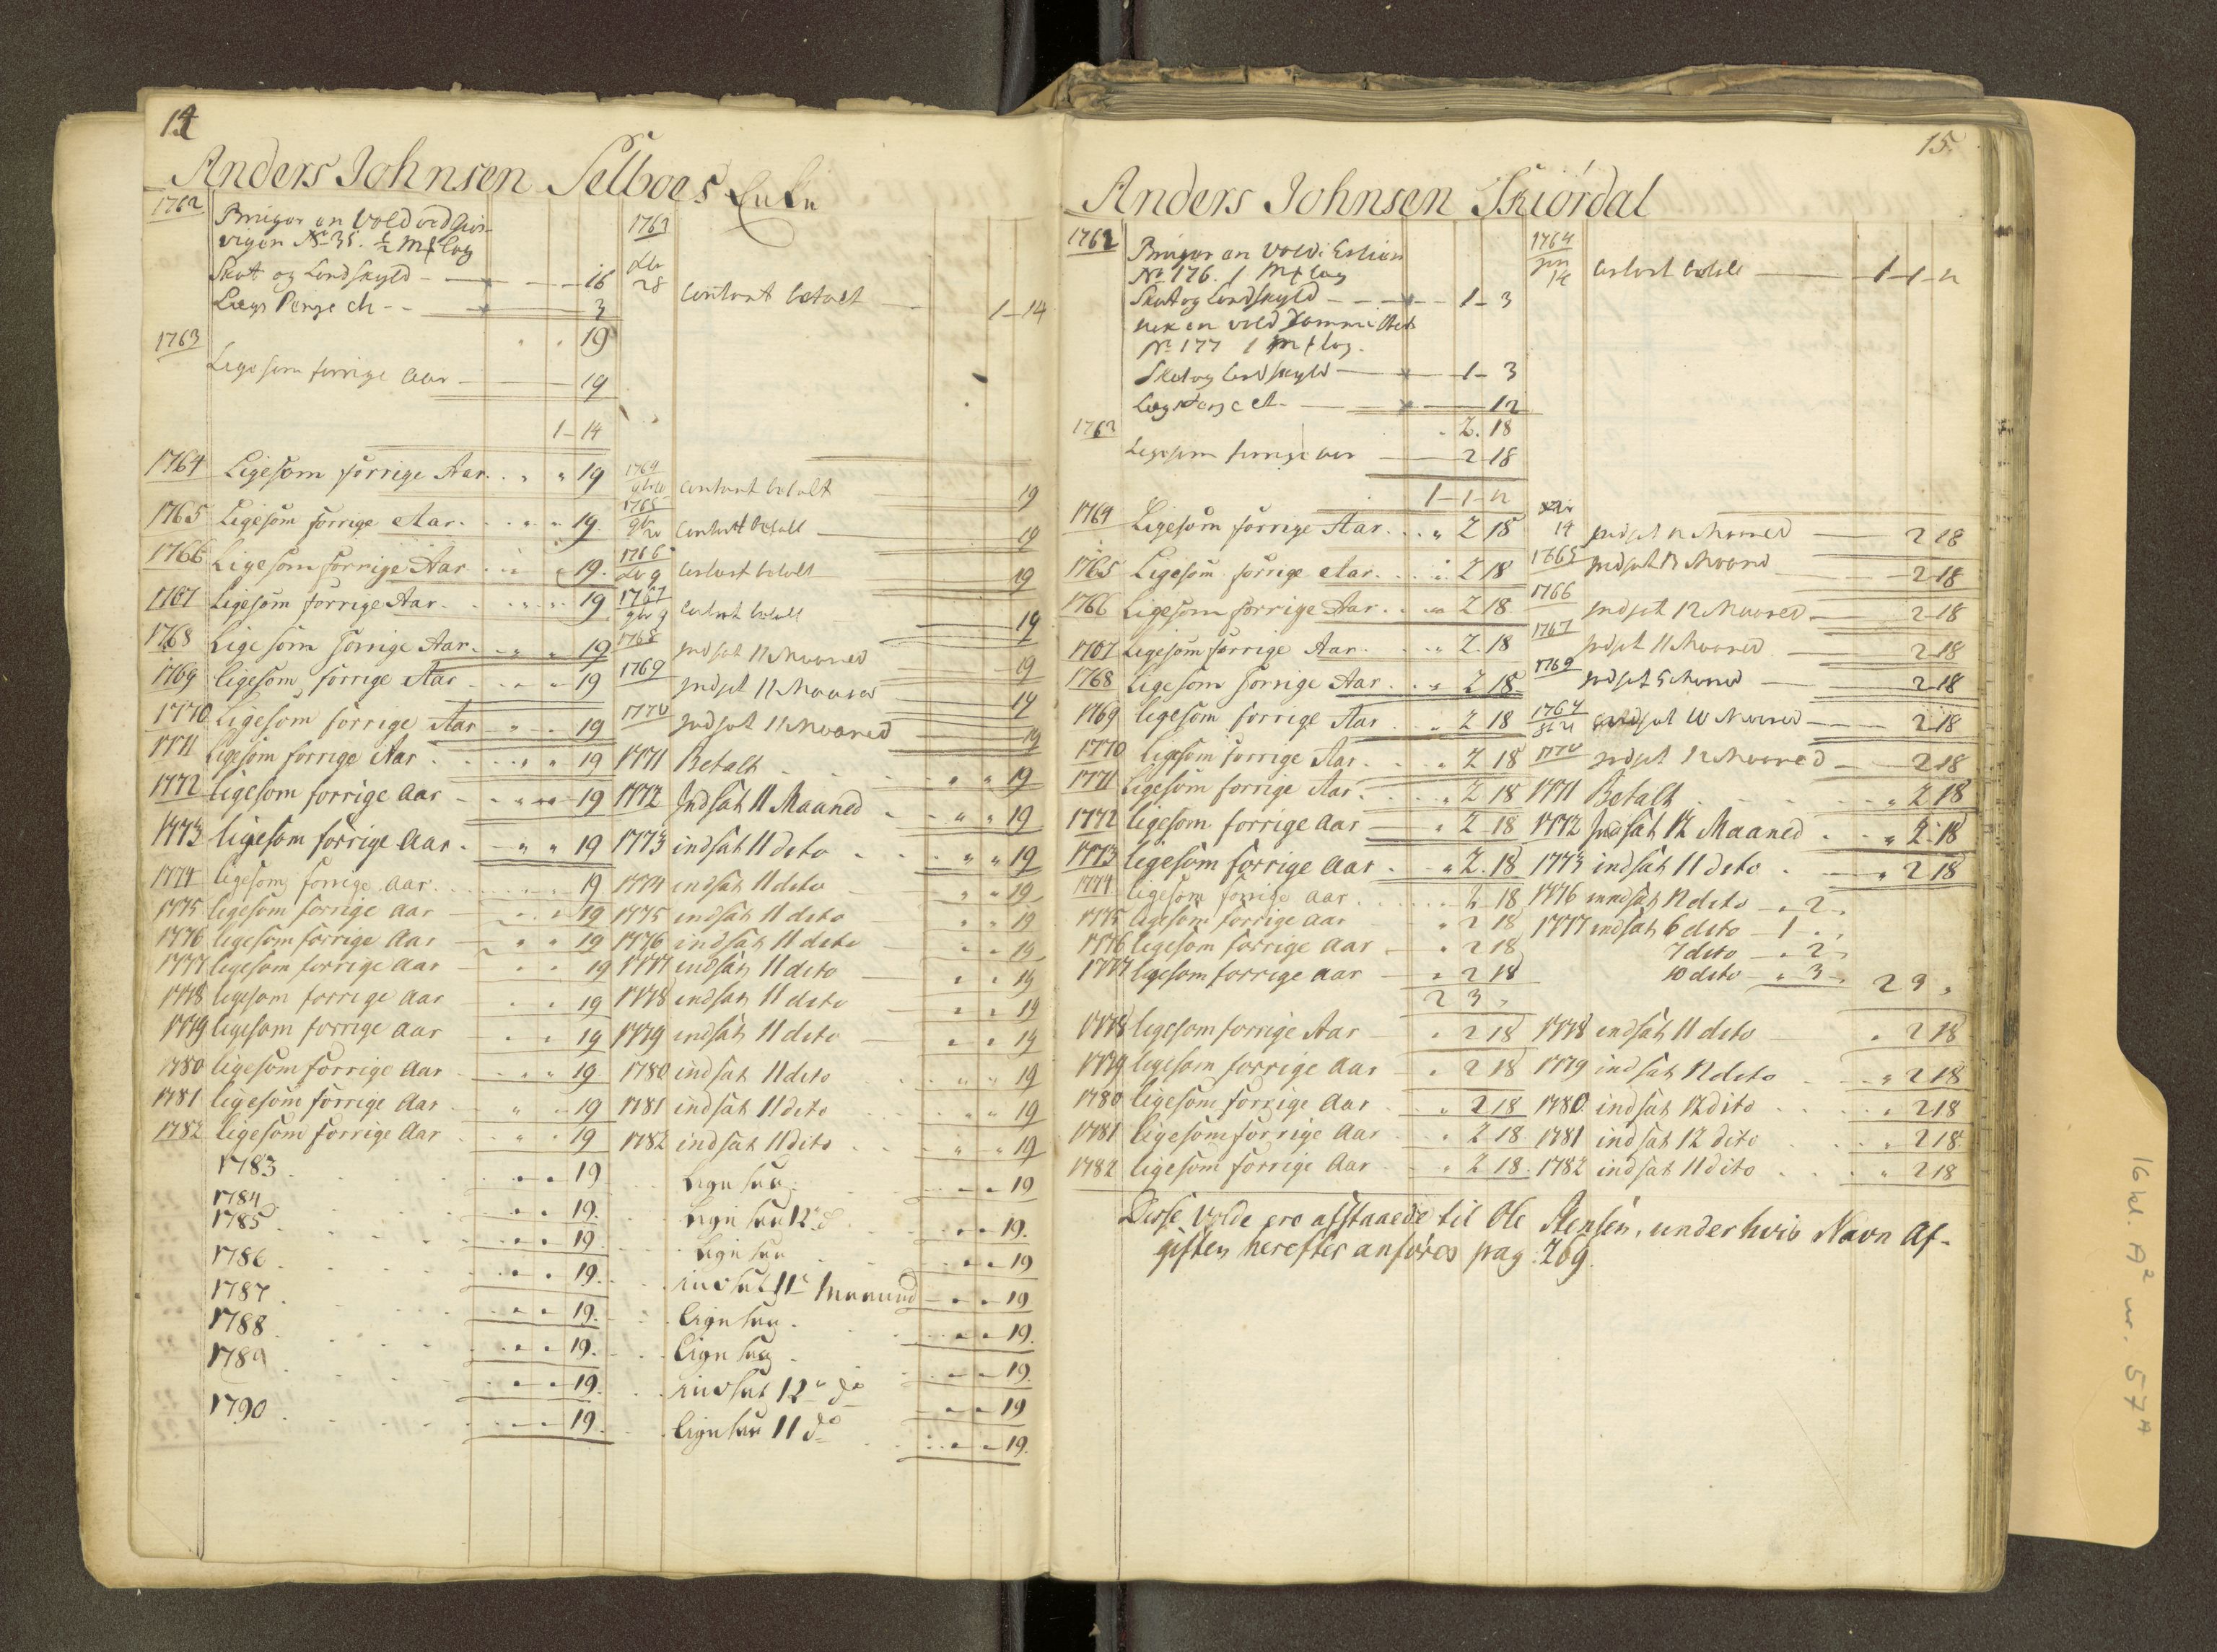 14
Anders Johnsen Selboe s Enke
1762
Bruger en Vold ved
vigen No 35. ½ mk lag
Skat og Landskyld - - - 16
Lægs Penge - - 3
" " 19
1763
Lige som forrige Aar - 19
1-14
1763
28 Contant betalt - 1-14
1764 Ligesom forrige Aar. . " " 19
1764 Contant betalt 19
1765 Ligesom forrige Aar. . . " " 19.
1765 Contant betalt 19
1766 Ligesom forrige Aar . . 19.
1766 Contant betalt 19
1767 Ligesom forrige Aar. . . " " 19
1767 Contant betalt 19
1768 Lige som forrige Aar. - " " 19
1768 Indsat 11 Maaned 19
1769 ligesom forrige Aar - " " 19
1769 Indsat 11 Maaned 19
1770 Ligesom forrige Aar - " " 19
1770 Indsat 11 Maaned 19
1771 Ligesom forrige Aar . . . " " 19 1771 Betalt . . . " " 19
1772 ligesom forrige Aar - - " " 19 1772 Indsat 11 Maaned - - " " 19
1773 ligesom forrige Aar . - " " 19 1773 indsat 11 dito . . " " 19
1774 ligesom forrige Aar . . . 19 1774 indsat 11 dito - " " 19
1775 ligesom forrige Aar - " " 19 1775 indsat 11 dito - " " 19
1776 ligesom forrige Aar - " " 19 1776 indsat 11 dito - " " 19
1777 ligesom forrige Aar - " " 19 1777 indsat 11 dito - " " 19
1778 ligesom forrige Aar - " " 19 1778 indsat 11 dito - " " 19
1779 ligesom forrige Aar " " 19 1779 indsat 11 dito - " " 19
1780 ligesom forrige Aar - " " 19 1780 indsat 11 dito . . " " 19
1781 ligesom forrige Aar - " " 19 1781 indsat 11 dito . . " " 19
1782 ligesom forrige Aar . " " 19 1782 indsat 11 dito . . " " 19
1783 . . . " " 19 Ligesaa . " " 19
1784 . . . " " 19. Ligesaa 12 d . " " 19.
1785 . . . " " 19 Ligesaa " " 19
1786 . . . " " 19. indsat 11 Maaned - " " 19
1787 . . . " " 19. Ligesaa . " " 19.
1788 . . . " " 19. Ligesaa . " " 19.
1789 . . . " " 19. indsat 12 do - " " 19
1790 . . . " " 19. Ligesaa 11 do . " " 19.
15.
Anders Johnsen Skiórdal
1762
Bruger en Vold i
No 176. 1 mk lag
Skat og Landskyld - - - 1-3
nok en vold
No 177 1 mk lag.
Skat og Landskyld - 1-3
- 12
" 2. 18
Ligesom forrige Aar - 2-18
1-1-12
1764
14 Contant betalt - 1-1-12
1764 Ligesom forrige Aar. . " 2 18
14 Indsat 12 Maaned - 2 18
1765 Ligesom forrige Aar. . . " 2 18
1765 Indsat 12 Maaned - 2 18
1766 Ligesom forrige Aar. . " 2 18
1766 Indsat 12 Maaned 2 18
1767 Ligesom forrige Aar. . " 2. 18
1767 Indsat 11 Maaned 2 18
1768 Ligesom forrige Aar. . " 2 18
1769 Indsat 5 Maaned - 2 18
1769 ligesom forrige Aar . " 2 18
Indsat 10 Maaned - 2 18
1770 Ligesom forrige Aar. . " 2 18
1770 Indsat 12 Maaned - 2 18
1771 Ligesom forrige Aar. . . " 2 18 1771 Betalt . . . " 2 18
1772 ligesom forrige Aar - " 2-18 1772 Indsat 12 Maaned . " 2.18
1773 ligesom forrige Aar . - " 2. 18 1773 indsat 11 dito . - " 2 18
1774 ligesom forrige Aar . . . 2 18 1776 indsat 12 dito - " 2 "
1775 ligesom forrige Aar " 2 18 1777 indsat 6 dito - 1 " "
1776 ligesom forrige Aar - " 2 18 7 dito - " 2 "
1777 ligesom forrige Aar - " 2 18 10 dito " 3 " 2 3 "
2 3 "
1778 ligesom forrige Aar " 2 18 1778 indsat 11 dito - " 2 18
1779 ligesom forrige Aar - " 2 18 1779 indsat 12 dito . - " 2 18
1780 ligesom forrige Aar . - " 2 18 1780 indsat 12 dito . . . " 2 18
1781 ligesom forrige Aar . . " 2 18 1781 indsat 12 dito . . " 2 18
1782 ligesom forrige Aar . - " 2 18. 1782 indsat 11 dito . . . " 2 18
Disse Volde ere afstaaede til Ole Stensen, under hvis Navn Af-
giften herefter anføres pag: 269.
16 kl. A² nr. 57ᴬ